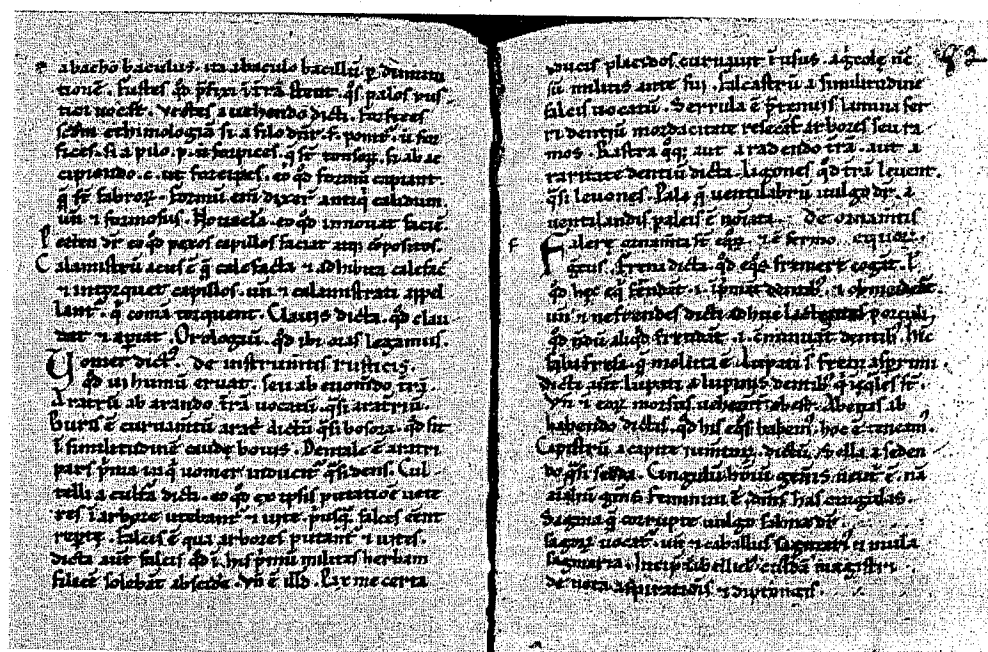 a bacho baculus. ita a baculo bacillū p diminu
tionē. Fustes qđ p̄fixi ī tr̄a stent. q̄s palos rus
tici uocāt. Vectes a uehendo dicti. Forfices
scđm ethimologiā si a filo dr̄nt. f. ponit̄. ut for
fices. si a pilo. p. ut forpices. q̄ sr̄ tonsoꝝ. si ab ac
cipiendo. c. ut forcipes. eo qđ formū capiant.
q̄ sr̄ fabroꝝ. formū eni dixer̄ antiq̄ calidum.
un̄ ⁊ formosus. Nouacla. eo qđ innouat faciē.
Pecten dr̄ eo qđ pexos capillos faciat atq; cōpositos.
Calamistrū acus ē q̄ calefacta ⁊ adhibita calefac̄
⁊ intorquet capillos. un̄ ⁊ calamistrati appel
lant̄. q̄ comā torquent. Clauis dicta. qđ clau
dat ⁊ apiat. Orologiū. qđ ibi oras legamus.
Vomer dict᷒ de instrum̄tis rusticis.
qđ ui humū eruat. seu ab euomēdo tr̄ā.
Aratrū ab arando tr̄ā uocatū. q̄si aratriū.
Buris ē curuam̄tū arat̄ dictū q̄si bosora. qđ sit
ī similitudinē caudę bouis. Dentale ē aratri
pars p̄ma in q̄ uomer inducit̄ q̄si dens. Cul
telli a cultura dicti. eo qđ ex ipsis putationē uete
res ī arbore utebant̄ ⁊ uite. p̄usq̄ falces eent
reptę. Falcis ē qua arbores putant̄ ⁊ uites.
dicta aut̄ falcis qđ ī his p̄mū milites herbam
filicē solebāt abscide. Vn̄ ē illđ. Pax me certa
ducis placidos curuauit ī usus. Agricolę nc̄
sū militis ante fui. Falcastrū a similitudine
falcis uocatū. Serrula ē p̄tenuis lamina fer
ri dentiū mordacitate resecās arbores seu ra
mos. Rastra q̄q; aut a radendo tr̄ā. aut a
raritate dentiū dicta. Ligones qđ tr̄ā leuent.
q̄si leuones. Pala q̄ uentilabrū uulgo dr̄. a
uentilandis paleis ē noīata. de ornam̄tis
Falerę ornam̄ta sr̄ eqoꝝ. ⁊ ē sermo equoꝝ.
gꝛecus. Frena dicta. qđ eqs fremere cogāt. ł
qđ hęc eq̄ frendāt. i. īpmāt dentib᷒. ⁊ obmordeāt.
un̄ ⁊ nefrendes dicti adhuc lactentes porculi,
qđ nōdū aliqđ frendāt. i. cōminuāt dentib᷒. Hic
⁊ faba fresa. q̄ molita ē. Lupati s̄ freni asp̄rimi
dicti aut̄ lupati a lupinis dentib᷒. q̄ inęqles sr̄.
Vn̄ ⁊ eoꝝ morsus uehemt̄ obest. Abenas ab
habendo dictas. qđ his eqs habem̄. hoc ē tenem᷒.
Capistrū a capite iumtoꝝ dictū. Sella a seden
do q̄si sedda. Cingulū hōīnū gn̄is neut̄ ē. nā
aīaliū gn̄is feminini ē. dīm᷒ has cingulas.
Sagma q̄ corrupte uulgo salma dr̄.
sagoꝝ uocat̄. un̄ ⁊ caballus sagmari᷒ ⁊ mula
sagmaria. Incip̄ libellus cui᷒dā magistri
de nota aspirationis ⁊ diptongis.